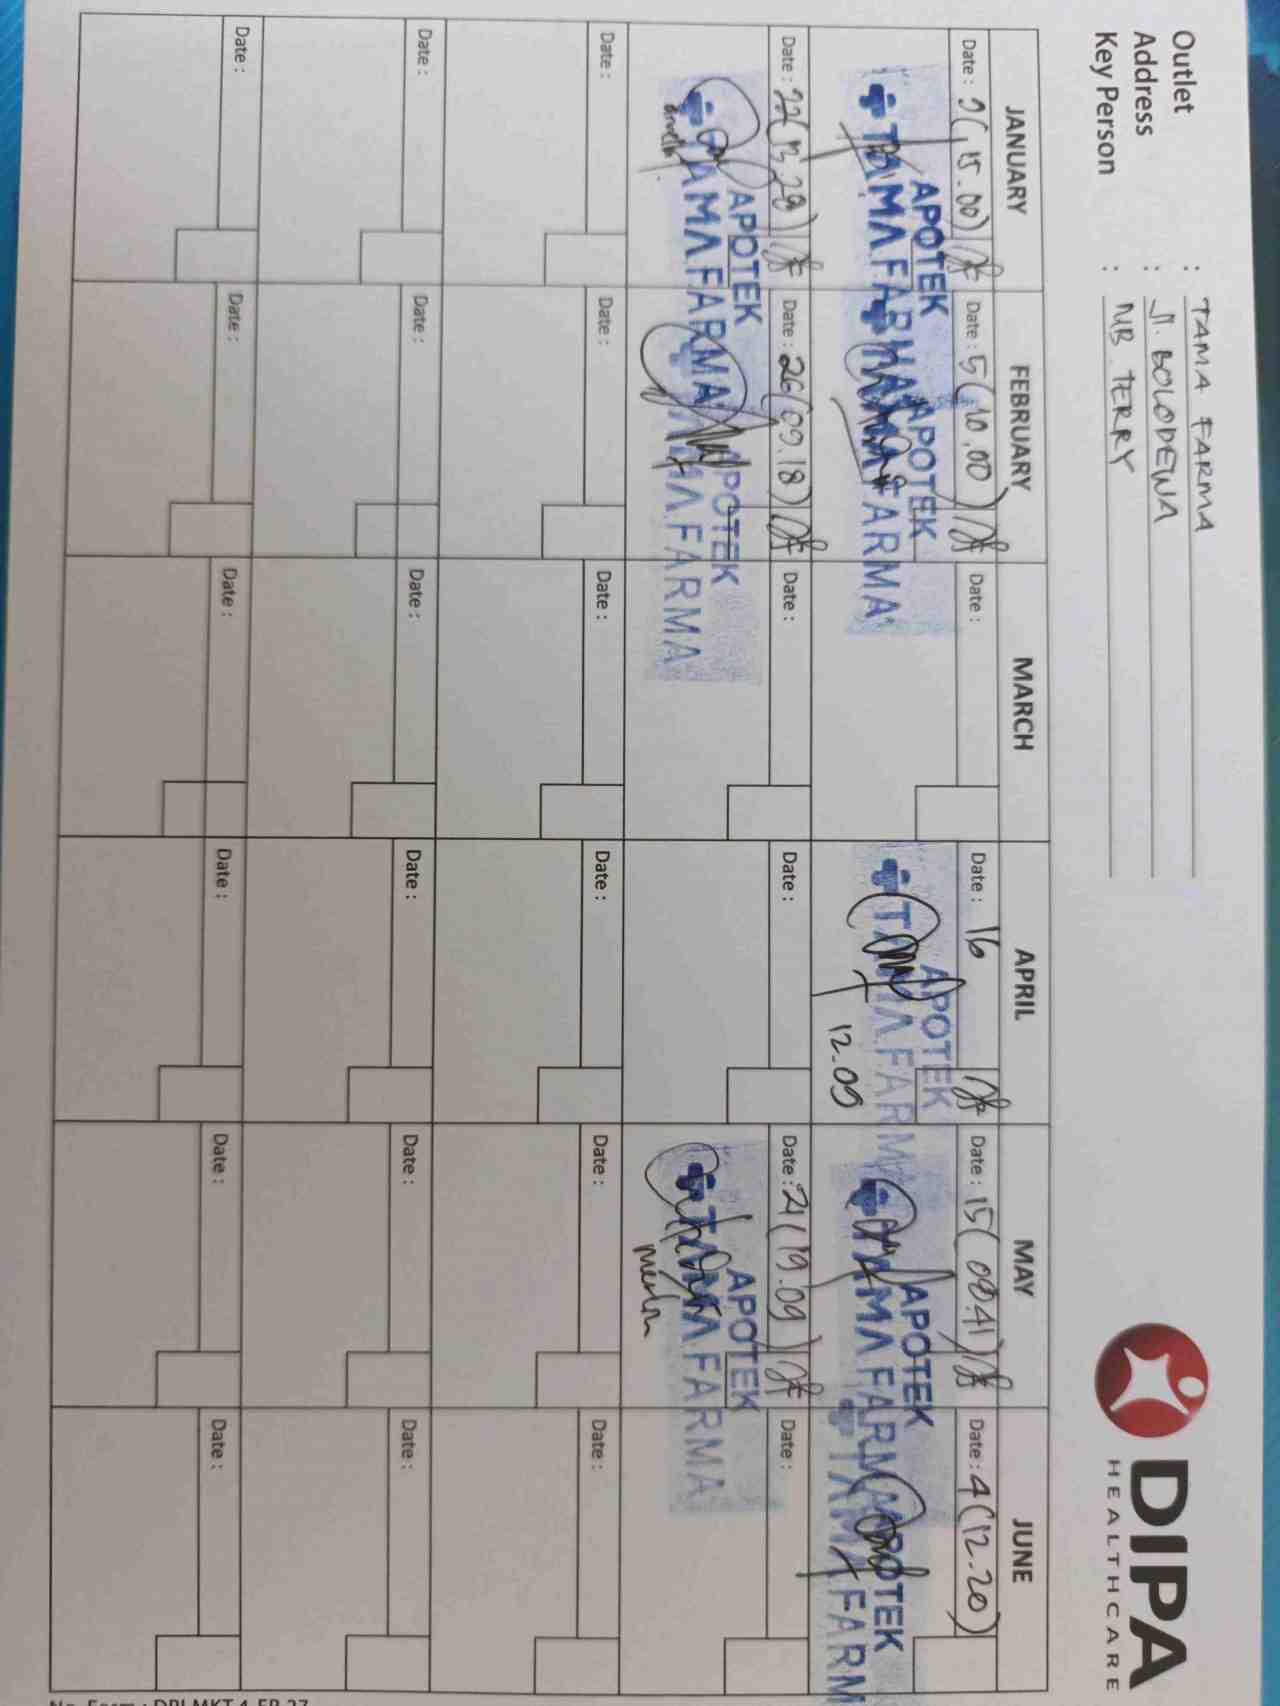 Outlet : TAMA FARMA
Address : Jl. BOLODEWA
Key Person : MB. TERRY
DIPA
HEALTHCARE
JANUARY FEBRUARY MARCH APRIL MAY JUNE
Date : 2(15.00) Date : 5(10.00) Date : Date : 16 Date : 15(09.41) Date : 4(12.20)
APOTEK APOTEK APOTEK APOTEK APOTEK
TAMA FARMA TAMA FARMA TAMA FARMA TAMA FARMA TAMA FARM
12.09
Date : 22(13.28) Date : 26(09.18) Date : Date : Date : 21(19.09) Date :
APOTEK APOTEK APOTEK
TAMA FARMA TAMA FARMA TAMA FARMA
Date : Date : Date : Date : Date : Date :
Date : Date : Date : Date : Date : Date :
Date : Date : Date : Date : Date : Date :